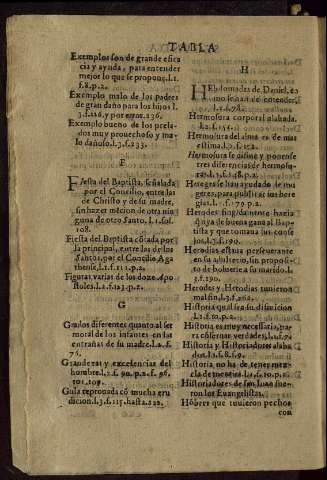 TABLA
Exemplos son de grande efica
cia y ayuda, para entender
mejor lo que se propone, l.1.
f.8.p.2.
Exemplo malo de los padres
de gran daño para los hijos l.
3.f.226. y por error. 236.
Exemplo bueno de los prela-
dos muy prouechoso y ma-
lo dañoso. l.3.f.233.
F
Fiesta del Baptista, señalada
por el Concilio, entre las
de Christo y de su madre,
sin hazer mēcion de otra nin
guna de otro Santo. l.1. fol.
108.
Fiesta del Baptista cōtada por
la principal, entre las de los
Santos, por el Concilio Aga
thense, l.1.f.111.p.2.
Figuras varias de los doze Apo
stoles. l.1.f.123.p.2.
G
Grados diferentes quanto al ser
moral de los infantes en las
entrañas de su madre. l.2.f.
76.
Grandezas y excelencias del
hombre. l.2.f.90.p.2. f.96.
101.109.
Gula reprouada cō mucha eru
dicion. l.3.f.215. hasta.222.
H
Hebdomadas de Daniel, co
mo se han de entender,
l.2.f.78.
Hermosura corporal alabada.
l.2.f.152.
Hermosura del alma es de mas
estima. f.152.
Hermosura se difine y ponense
tres diferencias de hermosu-
ras. l.3.f.148.p.2.
Hereges se han ayudado de mu
geres, para publicar sus here
gias. l.1.f.170.p.2.
Herodes fingidamente hazia
de buena gana al Bap-
tista y que tomaua sus conse
jos. l.3.f.190.
Herodias estaua perseuerante
en su adulterio, sin proposi-
to de boluerse a su marido. l.
3.f.190.
Herodes y Herodias tuuieron
mal fin, l.3.f.262.
Historia qual sea su difinicion
l.1.f.10.p.2.
Historia es muy necessaria, pa-
ra cōseruar verdades. l.1.f.9.
Historia y Historiadores alaba
dos. l.3.f.8.f.9.
Historia no ha de tener mez-
cla de mentira. l.1.f.10.p.2.
Historiadores de san Iuan fue-
ron los Euangelistas.
Hōbres que tuuieron pechos
con